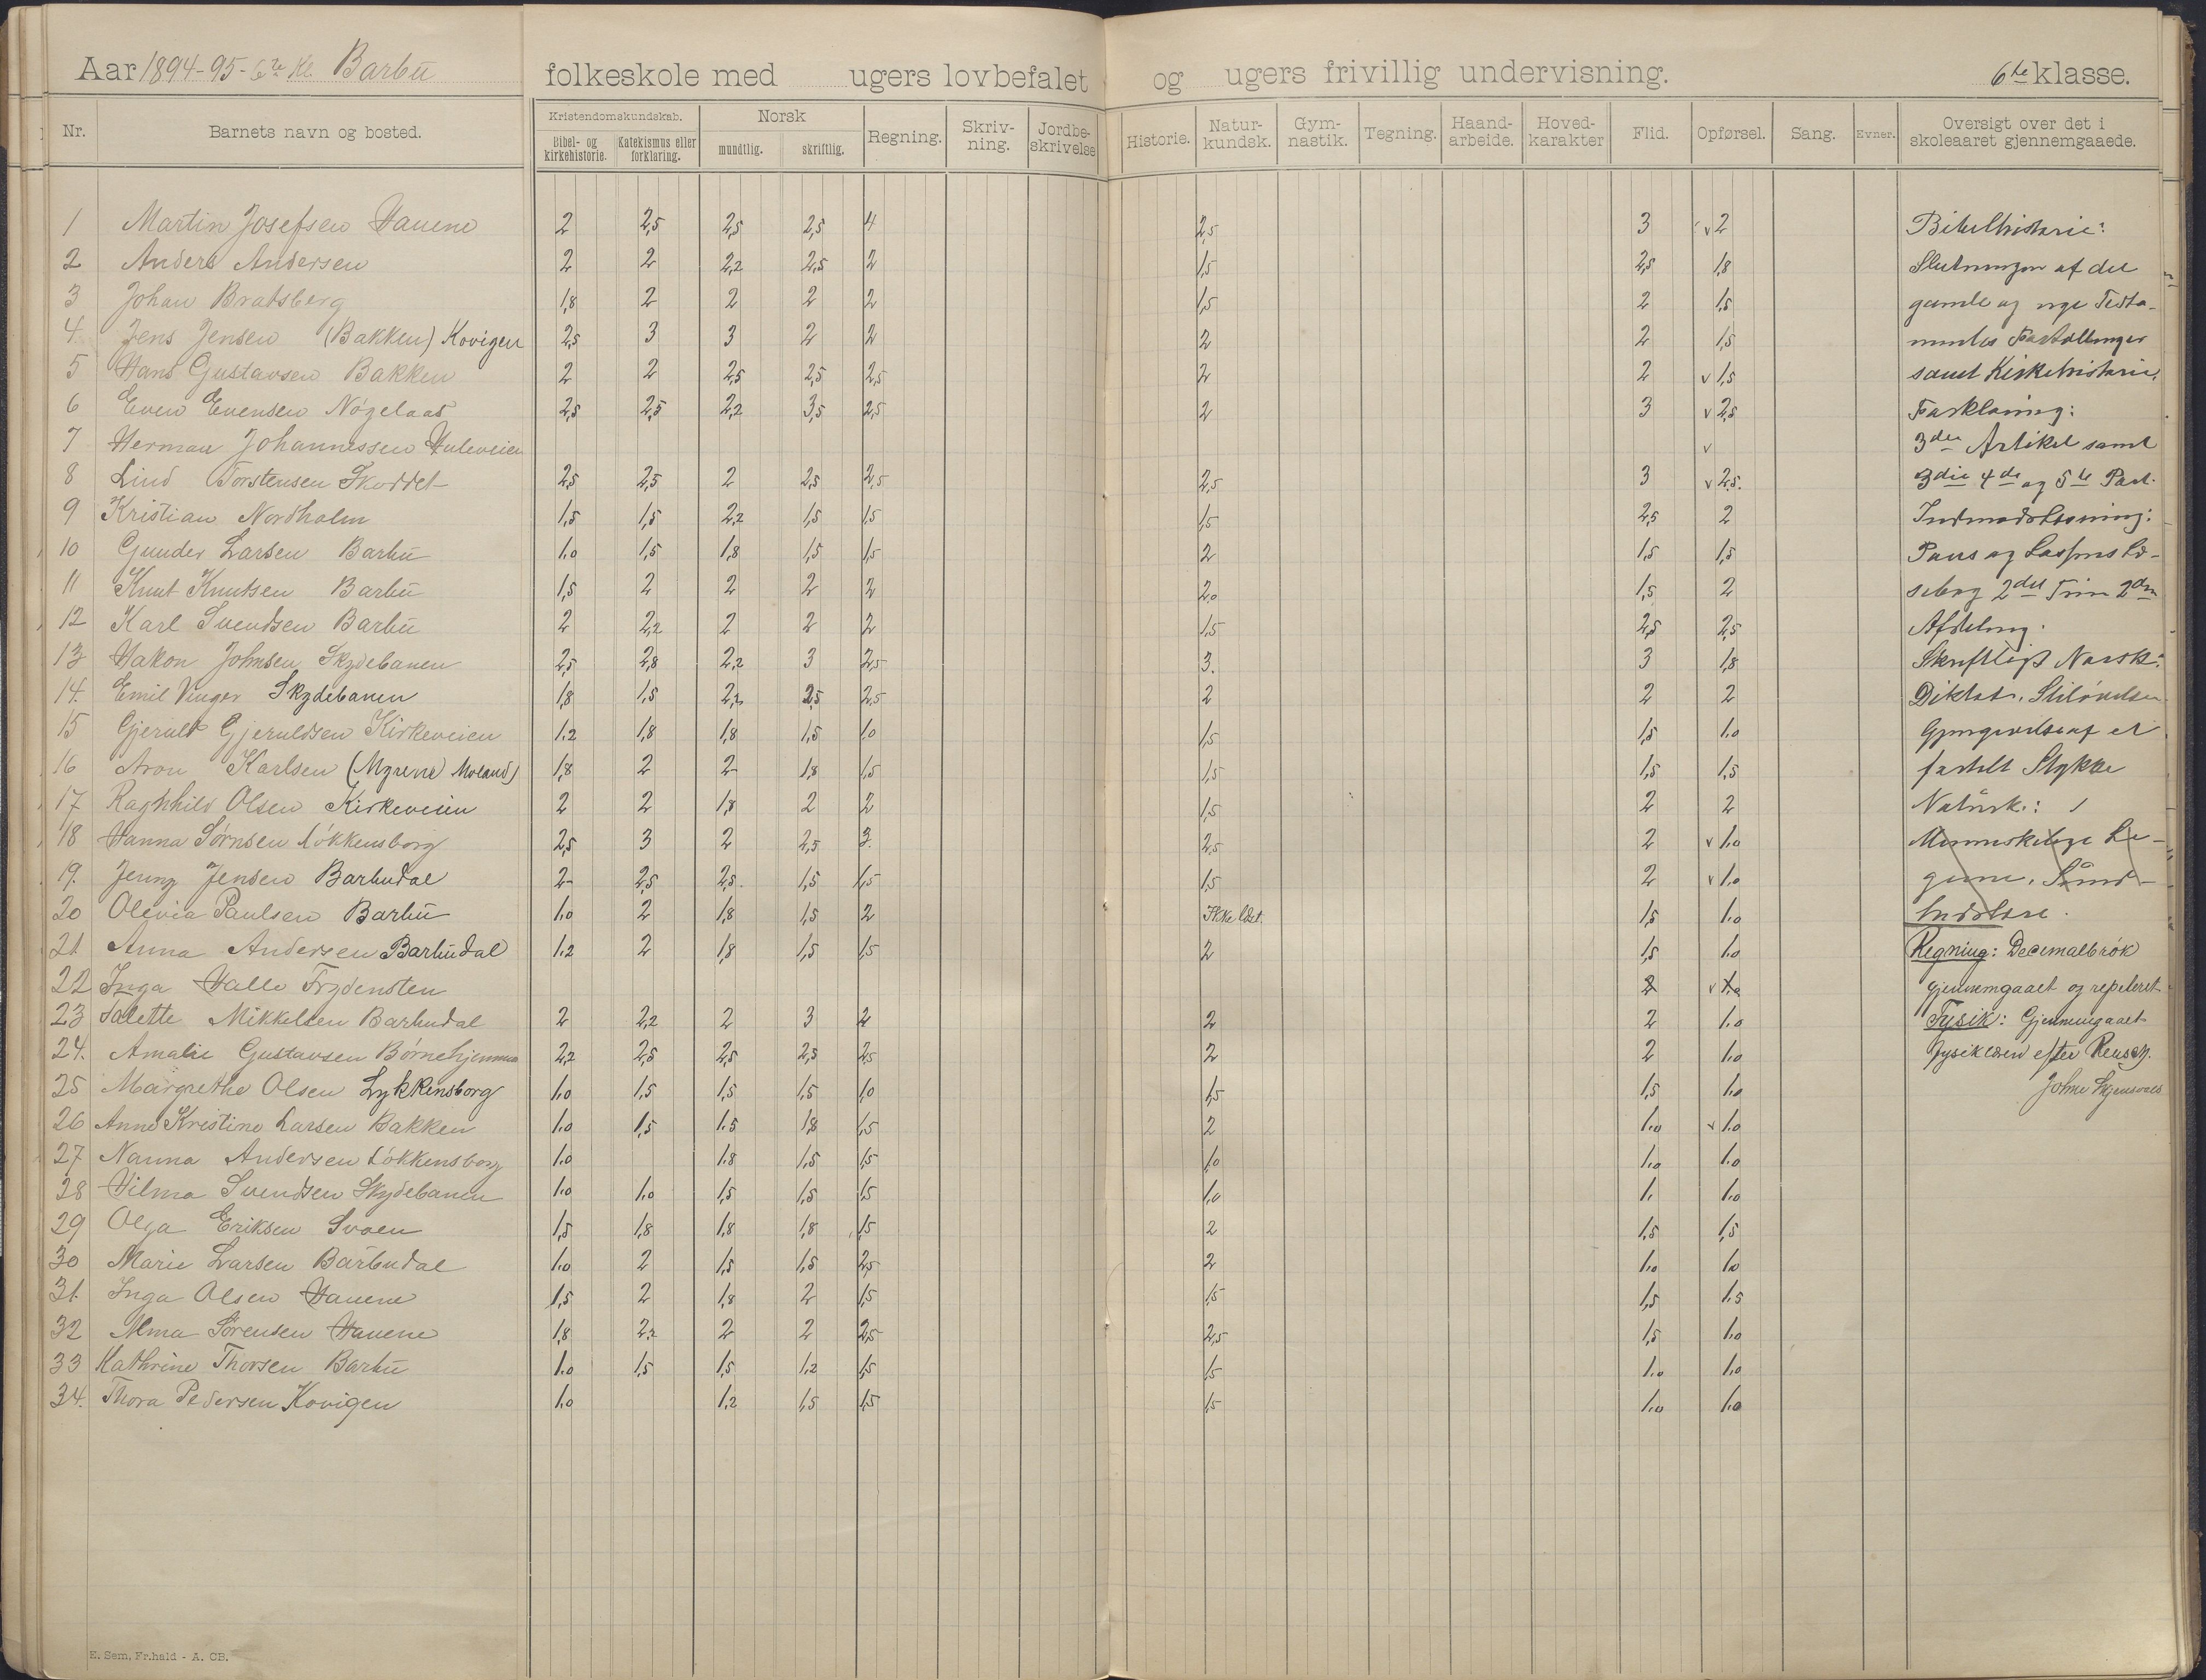 Aar 1894-95- 6te Kl. Barbu folkeskole med ugers lovbefalet og ugers frivillig undervisning. 6te klasse.
Nr. Barnets navn og bosted. Kristendomskundskab. Norsk Regning. Skriv-ning. Jordbe-skrivelse Historie. Natur-kundsk. Gym-nastik. Tegning. Haand-arbeide. Hoved-karakter Flid. Opførsel. Sang. Evner. Oversigt over det i skoleaaret gjennemgaaede.
Bibel- og kirkehistorie. Katekismus eller forklaring. mundtlig. skriftlig.
1 Martin Josefsen Hauene 2 2,5 2,5 2,5 4 2,5 3 v 2 Bibelhistorie:
2 Anders Andersen 2 2 2,2 2,5 2 1,5 2,5 1,8 Slutningen af det
3 Johan Bratsberg 1,8 2 2 2 2 1,5 2 1,5 gamle og nye Testa-
4. Jens Jensen (Bakken) Kovigen 2,5 3 3 2 2 2 2 1,5 mentes Fortællinger
5 Hans Gustavsen Bakken 2 2 2,5 2,5 2,5 2 2 v 1,5 samt Kirkehistorie.
6 Even Evensen Nøgelaas 2,5 2,5 2,2 3,5 2,5 2 3 v 2,5 Forklaring:
7 Herman Johannessen Huleveien v 3die Artikel samt
8 Lind Torstensen Skoddet 2,5 2,5 2 2,5 2,5 2,5 3 v 2,5. 3die 4de og 5te Part.
9 Kristian Nordholm 1,5 1,5 2,2 1,5 1,5 1,5 2,5 2 Indenadslæsning:
10 Gunder Larsen Barbu 1.0 1,5 1,8 1,5 1,5 2 1,5 1,5 Pauss og Lassens Læ-
11 Knut Knutsen Barbu 1,5 2 2 2 2 2.0 1,5 2 sebog 2det Trin 2den
12 Karl Svendsen Barbu 2 2,2 2 2 2 1,5 2,5 2,5 Afdeling.
13 Hakon Johnsen Skydebanen 2,5 2,8 2,2 3 2,5 3. 3 1,8 Skriftligt Norsk:
14. Emil Vinger Skydebanen 1,8 1,5 2,2 2,5 2,5 2 2 2 Diktat, Stiløvelser
15 Gjerult Gjeruldsen Kirkeveien 1.2 1,8 1,8 1,5 1.0 1,5 1,5 1.0 Gjengivelse af et
16 Aron Karlsen (Myrene Moland) 1,8 2 2 1,8 1,5 1,5 1,5 1,5 fortalt Stykke
17 Raghhild Olsen Kirkeveien 2 2 1,8 2 2 1,5 2 2 Natursk.:
18 Hanna Sørnsen Løkkensborg 2,5 3 2 2,5 3. 2,5 2 v 1.0 Menneskelige Le-
19. Jenny Jensen Barbudal 2 2,5 2,5. 1,5 1,5 1,5 2 v 1.0 geme. Sund-
20 Olevia Paulsen Barbu 1.0 2 1,8 1,5 2 Ikke læst. 1,5 1.0 hedslære.
21 Anna Andersen Barbudal 1.2 2 1,8 1,5 1,5 2 1,5 1.0 Regning: Decemalbrøk
22 Inga Halle Frydensten 2 v 1.0 gjennemgaaet og repeteret
23 Talette Mikkelsen Barbudal 2 2,2 2 3 2 2 2 1.0 Fysik: Gjennemgaaet
24. Amalie Gustavsen Børnehjemmet 2,2 2,5 2,5 2,5 2,5 2 2 1.0 fysiklæren efter Reusch.
25 Margrethe Olsen Lykkensborg 1.0 1,5 1,5 1,5 1,0 1,5 1,5 1.0 Johne
26 Anne Kristine Larsen Bakken 1.0 1,5 1.5 1,8 1,5 2 1.0 v 1.0
27 Nanna Andersen Løkkensborg 1.0 1.8 1,5 1,5 1,0 1.0 1.0
28 Hilma Svendsen Skydebanen 1.0 1.0 1,5 1,5 1,5 1,0 1. 1.0
29 Olga Eriksen Svoen 1,5 1,8 1,8 1,8 1,5 2 1,5 1,5
30 Marie Larsen Barbudal 1.0 2 1,5 1,5 2,5 2 1.0 1.0
31. Inga Olsen Hauene 1,5 2 1,8 2 1,5 1,5 1,5 1.5
32 Alma Sørensen Hauene 1,8 2,2 2 2 2,5 2,5 1,5 1.0
33 Kathrine Thorsen Barbu 1.0 1,5 1,5 1.2 1,5 1,5 1.0 1.0
34. Thora Pedersen Kovigen 1.0 1.2 1,5 1,5 1,5 1.0 1.0
E. Sem, Fr.hald - A. CB.